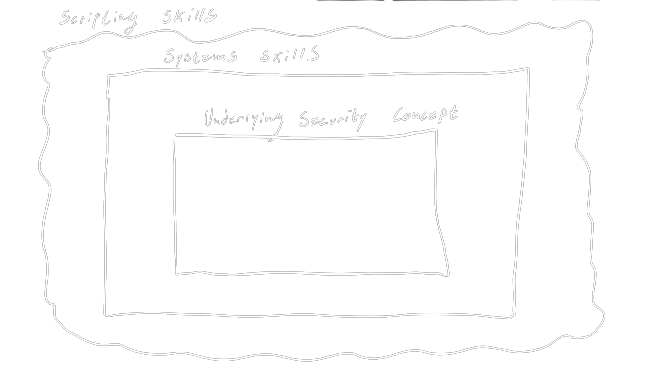 Scripting Skills
Systems Skills
Underlying Security Concept